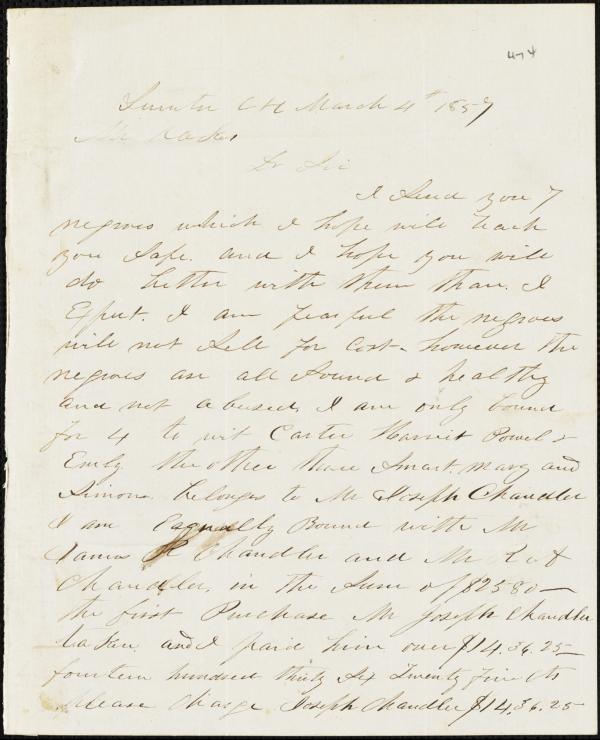 474
Sumter C H March 4th 1857
Mr Oakes
Dr Sir
I Send you 7
negroes which I hope will reach
you Safe. and I hope you will
do better with them than. I
Expect. I am fearful the negroes
will not Sell for Cost - however the
negroes are all Sound & healthy
and not abused, I am only bound
for 4 to wit Carter Harriet Powel &
Emily the other three Smart. mary and
Simon belongs to Mr Joseph Chandler
I am Eaqually Bound with Mr
James R Chandler and Mr
Chandler, in the Sum of $2580 —
the first Purchase Mr Joseph Chandler
and I paid him over $14.36.25 —
fourteen hundred thirty Six Twenty five cts
please charge Joseph Chandler $14.36.25